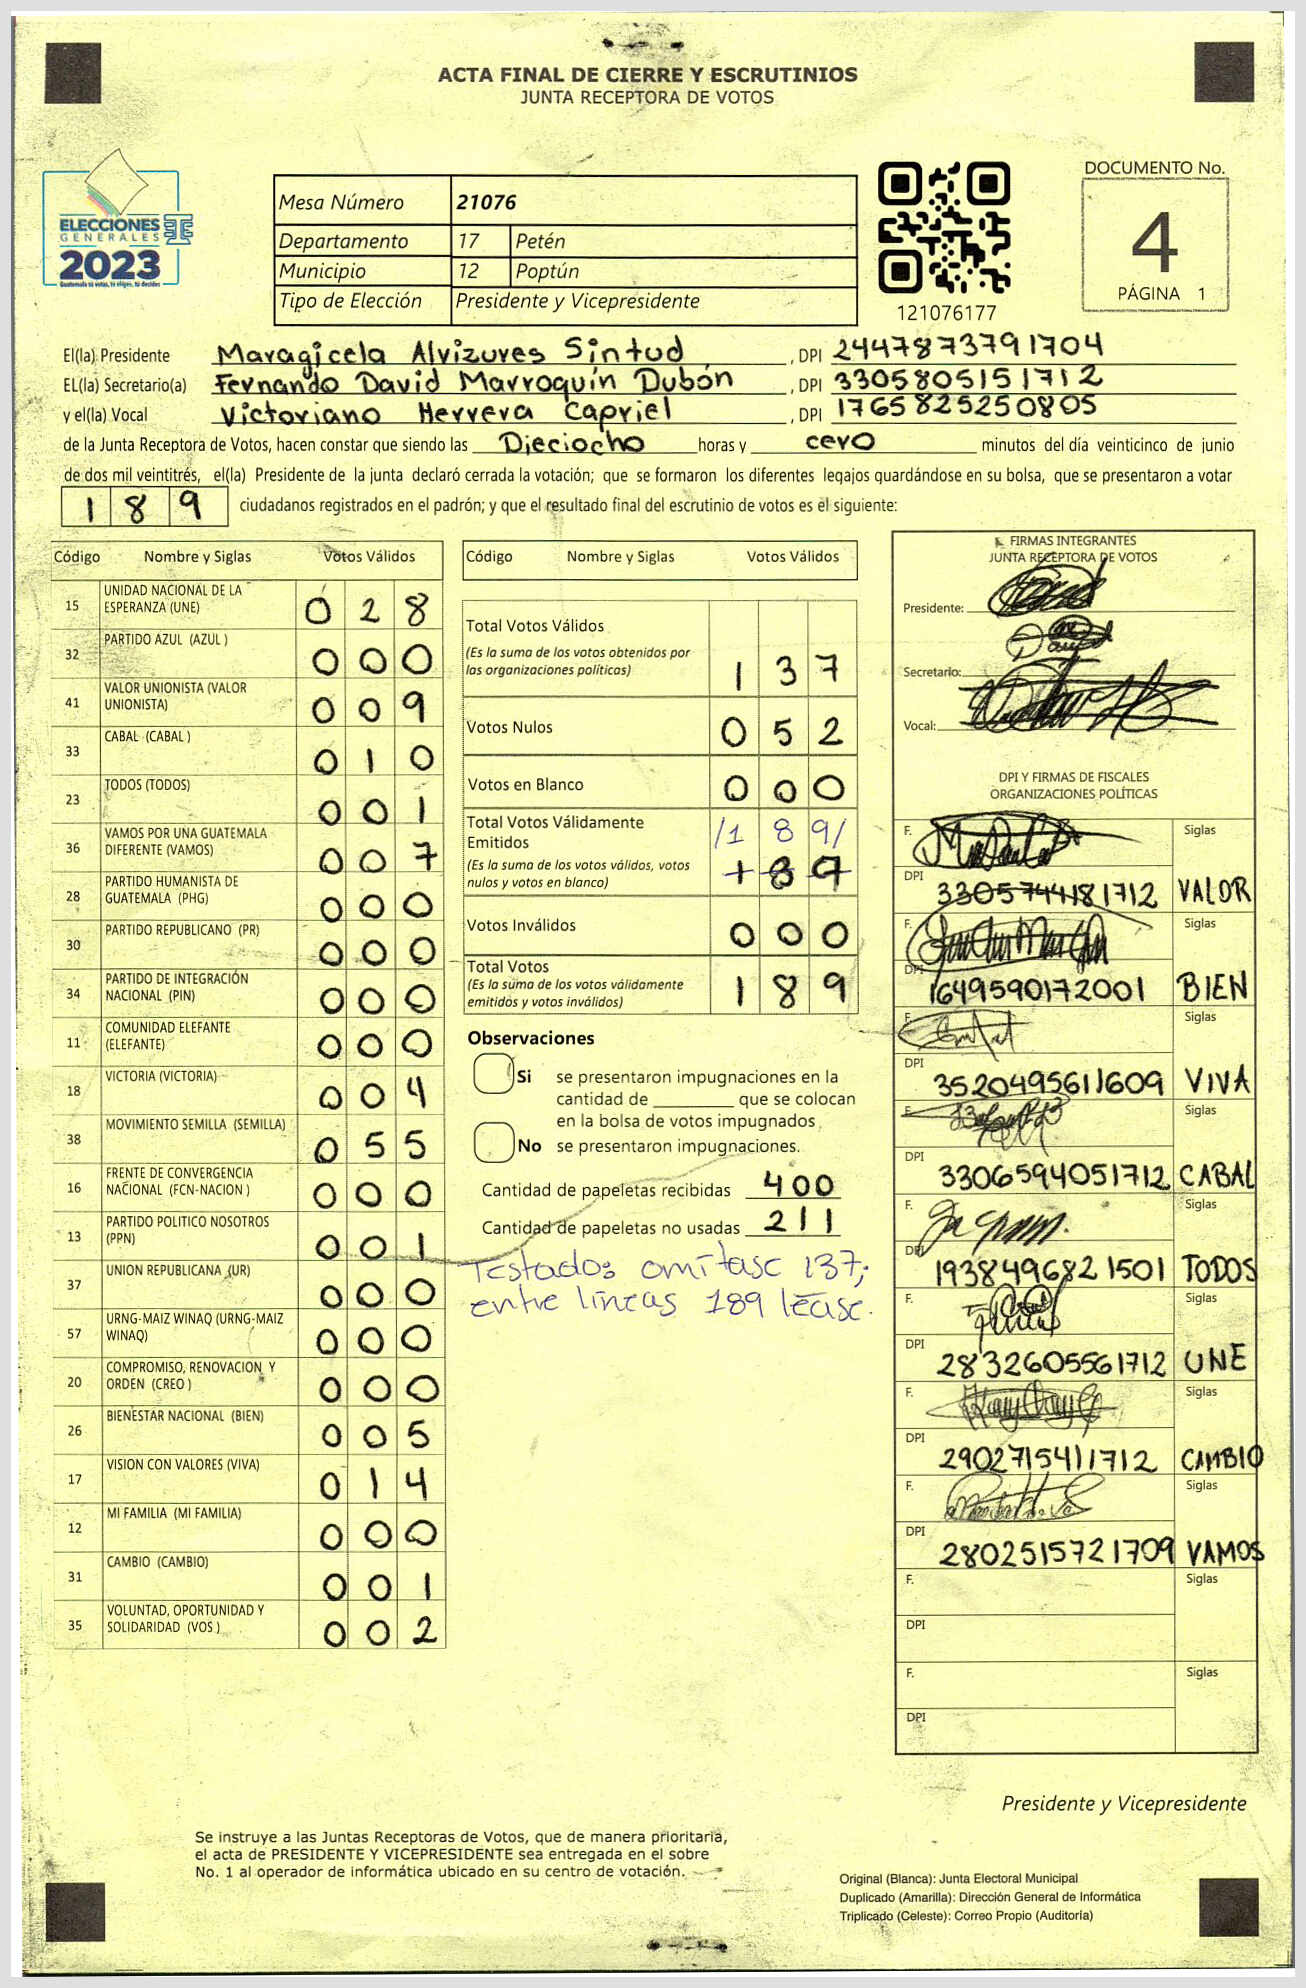 ACTA FINAL DE CIERRE Y ESCRUTINIOS
JUNTA RECEPTORA DE VOTOS
ELECCIONES
GENERALES
2023
Guatemala tú votas, tú eliges, tú decides
Mesa Número 21076
Departamento 17 Petén
Municipio 12 Poptún
Tipo de Elección Presidente y Vicepresidente
121076177
DOCUMENTO No.
4
PÁGINA 1
El(la) Presidente Maragicela Alvizures Sintud, DPI 2447873791704
EL(la) Secretario(a) Fernando David Marroquín Dubón, DPI 3305805151712
y el(la) Vocal Victoriano Herrera Capriel, DPI 1765825250805
de la Junta Receptora de Votos, hacen constar que siendo las Dieciocho horas y cero minutos del día veinticinco de junio
de dos mil veintitrés, el(la) Presidente de la junta declaró cerrada la votación; que se formaron los diferentes legajos guardándose en su bolsa, que se presentaron a votar
189 ciudadanos registrados en el padrón; y que el resultado final del escrutinio de votos es el siguiente:
Código Nombre y Siglas Votos Válidos
15 UNIDAD NACIONAL DE LA ESPERANZA (UNE) 028
32 PARTIDO AZUL (AZUL ) 000
41 VALOR UNIONISTA (VALOR UNIONISTA) 009
33 CABAL (CABAL ) 010
23 TODOS (TODOS) 001
36 VAMOS POR UNA GUATEMALA DIFERENTE (VAMOS) 007
28 PARTIDO HUMANISTA DE GUATEMALA (PHG) 000
30 PARTIDO REPUBLICANO (PR) 000
34 PARTIDO DE INTEGRACIÓN NACIONAL (PIN) 000
11 COMUNIDAD ELEFANTE (ELEFANTE) 000
18 VICTORIA (VICTORIA) 004
38 MOVIMIENTO SEMILLA (SEMILLA) 055
16 FRENTE DE CONVERGENCIA NACIONAL (FCN-NACION ) 000
13 PARTIDO POLITICO NOSOTROS (PPN) 001
37 UNION REPUBLICANA (UR) 000
57 URNG-MAIZ WINAQ (URNG-MAIZ WINAQ) 000
20 COMPROMISO, RENOVACION Y ORDEN (CREO ) 000
26 BIENESTAR NACIONAL (BIEN) 005
17 VISION CON VALORES (VIVA) 014
12 MI FAMILIA (MI FAMILIA) 000
31 CAMBIO (CAMBIO) 001
35 VOLUNTAD, OPORTUNIDAD Y SOLIDARIDAD (VOS ) 002
Código Nombre y Siglas Votos Válidos
Total Votos Válidos
(Es la suma de los votos obtenidos por
las organizaciones políticas) 137
Votos Nulos 052
Votos en Blanco 000
Total Votos Válidamente
Emitidos /189/
(Es la suma de los votos válidos, votos
nulos y votos en blanco)
Votos Inválidos 000
Total Votos
(Es la suma de los votos válidamente
emitidos y votos inválidos) 189
Observaciones
Si se presentaron impugnaciones en la
cantidad de ________ que se colocan
en la bolsa de votos impugnados.
No se presentaron impugnaciones.
Cantidad de papeletas recibidas 400
Cantidad de papeletas no usadas 211
Testado: omítase 137;
entre líneas 189 léase.
FIRMAS INTEGRANTES
JUNTA RECEPTORA DE VOTOS
Presidente:
Secretario:
Vocal:
DPI Y FIRMAS DE FISCALES
ORGANIZACIONES POLÍTICAS
F. Siglas
DPI 3305744181712 VALOR
F. Siglas
DPI 1649590172001 BIEN
F. Siglas
DPI 3520495611609 VIVA
F. Siglas
DPI 3306594051712 CABAL
F. Siglas
DPI 1938496821501 TODOS
F. Siglas
DPI 2832605561712 UNE
F. Siglas
DPI 2902715411712 CAMBIO
F. Siglas
DPI 2802515721709 VAMOS
F. Siglas
DPI
F. Siglas
DPI
Presidente y Vicepresidente
Se instruye a las Juntas Receptoras de Votos, que de manera prioritaria,
el acta de PRESIDENTE Y VICEPRESIDENTE sea entregada en el sobre
No. 1 al operador de informática ubicado en su centro de votación.
Original (Blanca): Junta Electoral Municipal
Duplicado (Amarilla): Dirección General de Informática
Triplicado (Celeste): Correo Propio (Auditoría)